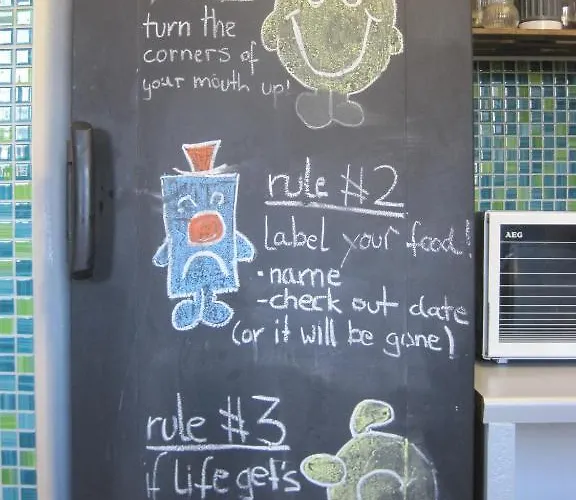 turn the
corners of
your mouth up!
rule #2
Label your food.
• name
- check out date
(or it will be gone)
AEG
rule #3
if life gets